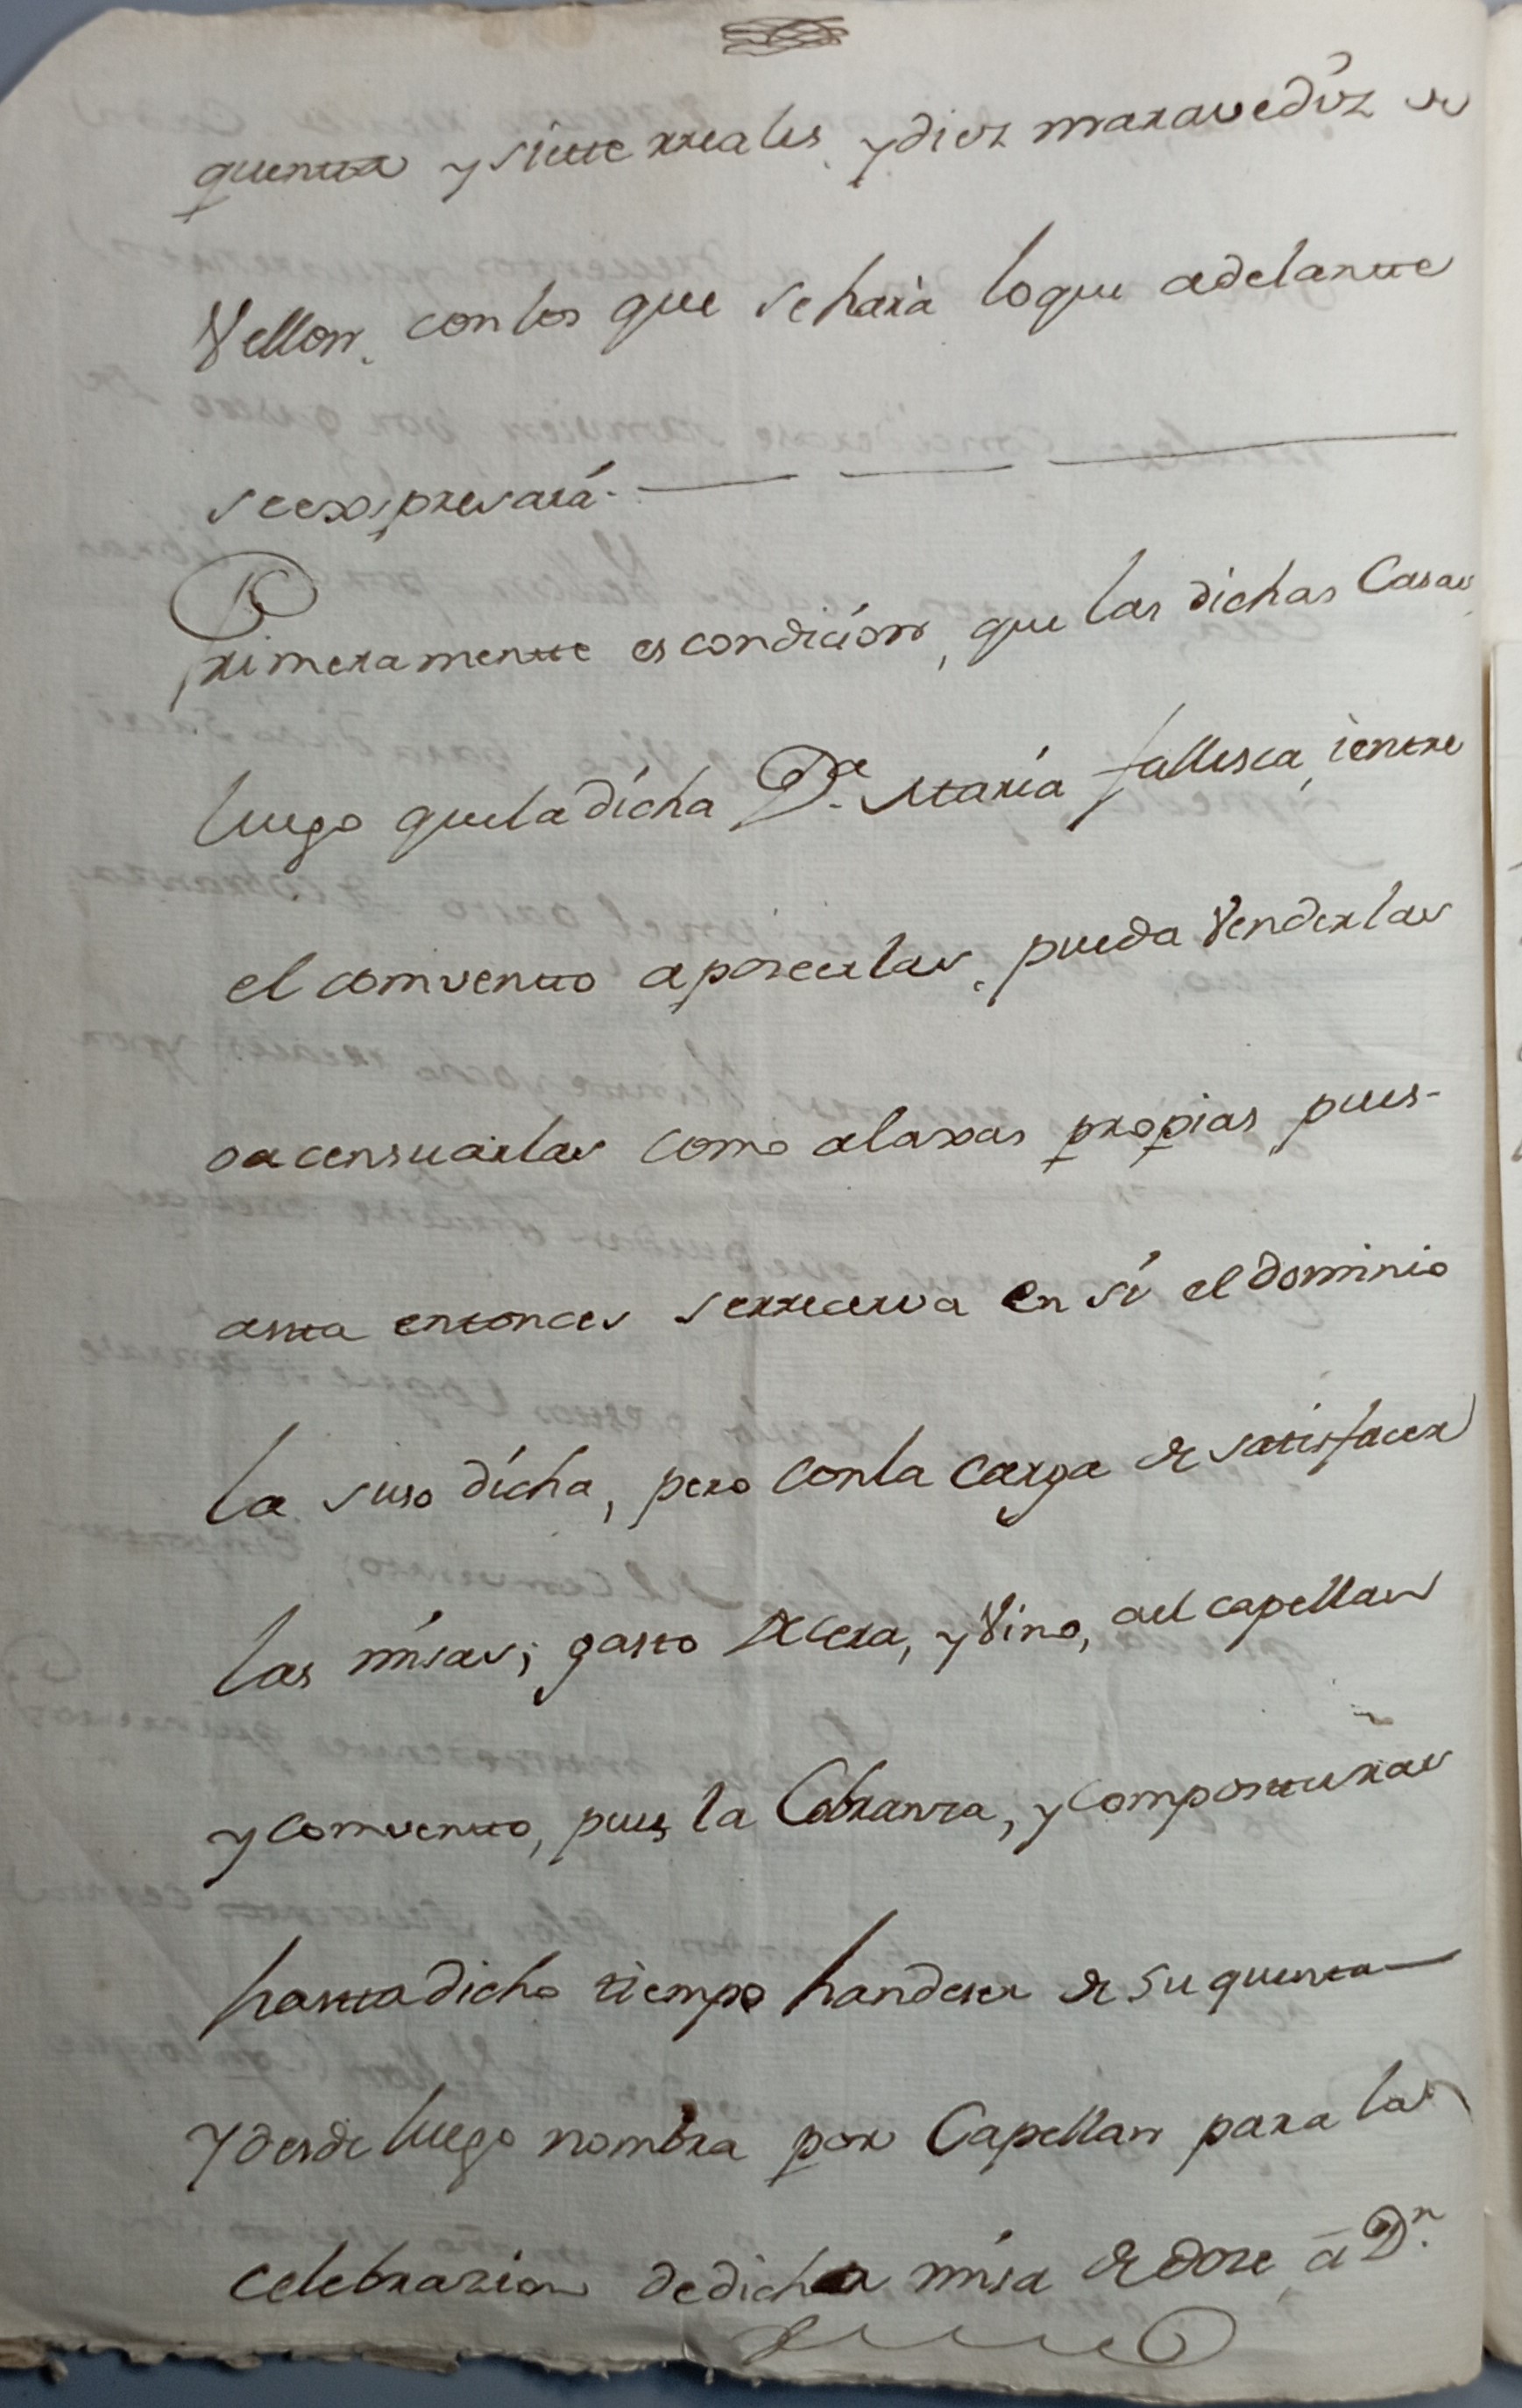 quenta y siette rreales y diez maravedis de
Vellon, con los que se hara lo que adelantte
se expresará.
Primeramentte es condicion, que las dichas Casas
luego que la dicha Dª Maria fallesca, ientre
el comventto a poseerlas, pueda Venderlas
o acensuarlas como alaxas propias pues-
asta entonces serrecerva en sí el dominio
la suso dicha, pero con la carga de satisfacer
las misas; gasto de cera, y Vino, ael capellan
y comventto, pues la Cobranza, y composturas
hastta dicho tiempo han de ser de su quenta
Y desde luego nombra por Capellan para la
celebrazion de dicha misa de doze â Dn.